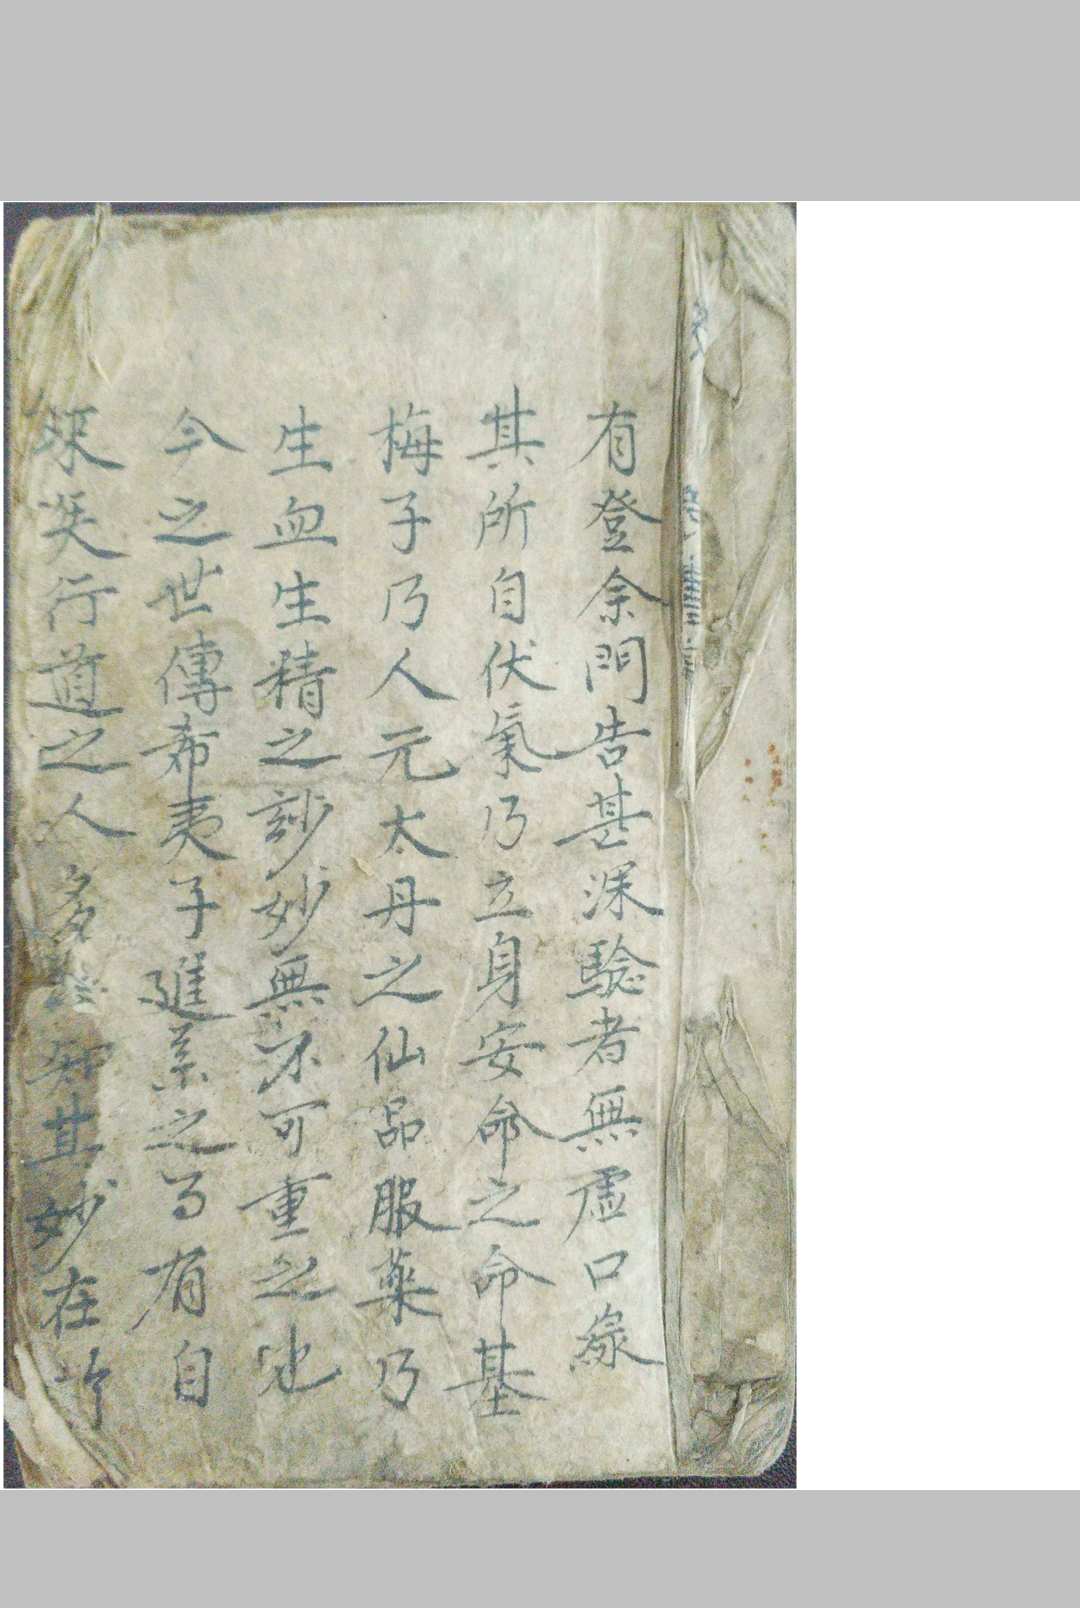 有登余門告甚深驗者無虛口缐
其所自伏氣乃立身安命之命基
梅子乃人元太丹之仙品服藥乃
生血生精之訬妙無不可重之也
今之世傳希夷子進業之有自
行道之人多知其妙在